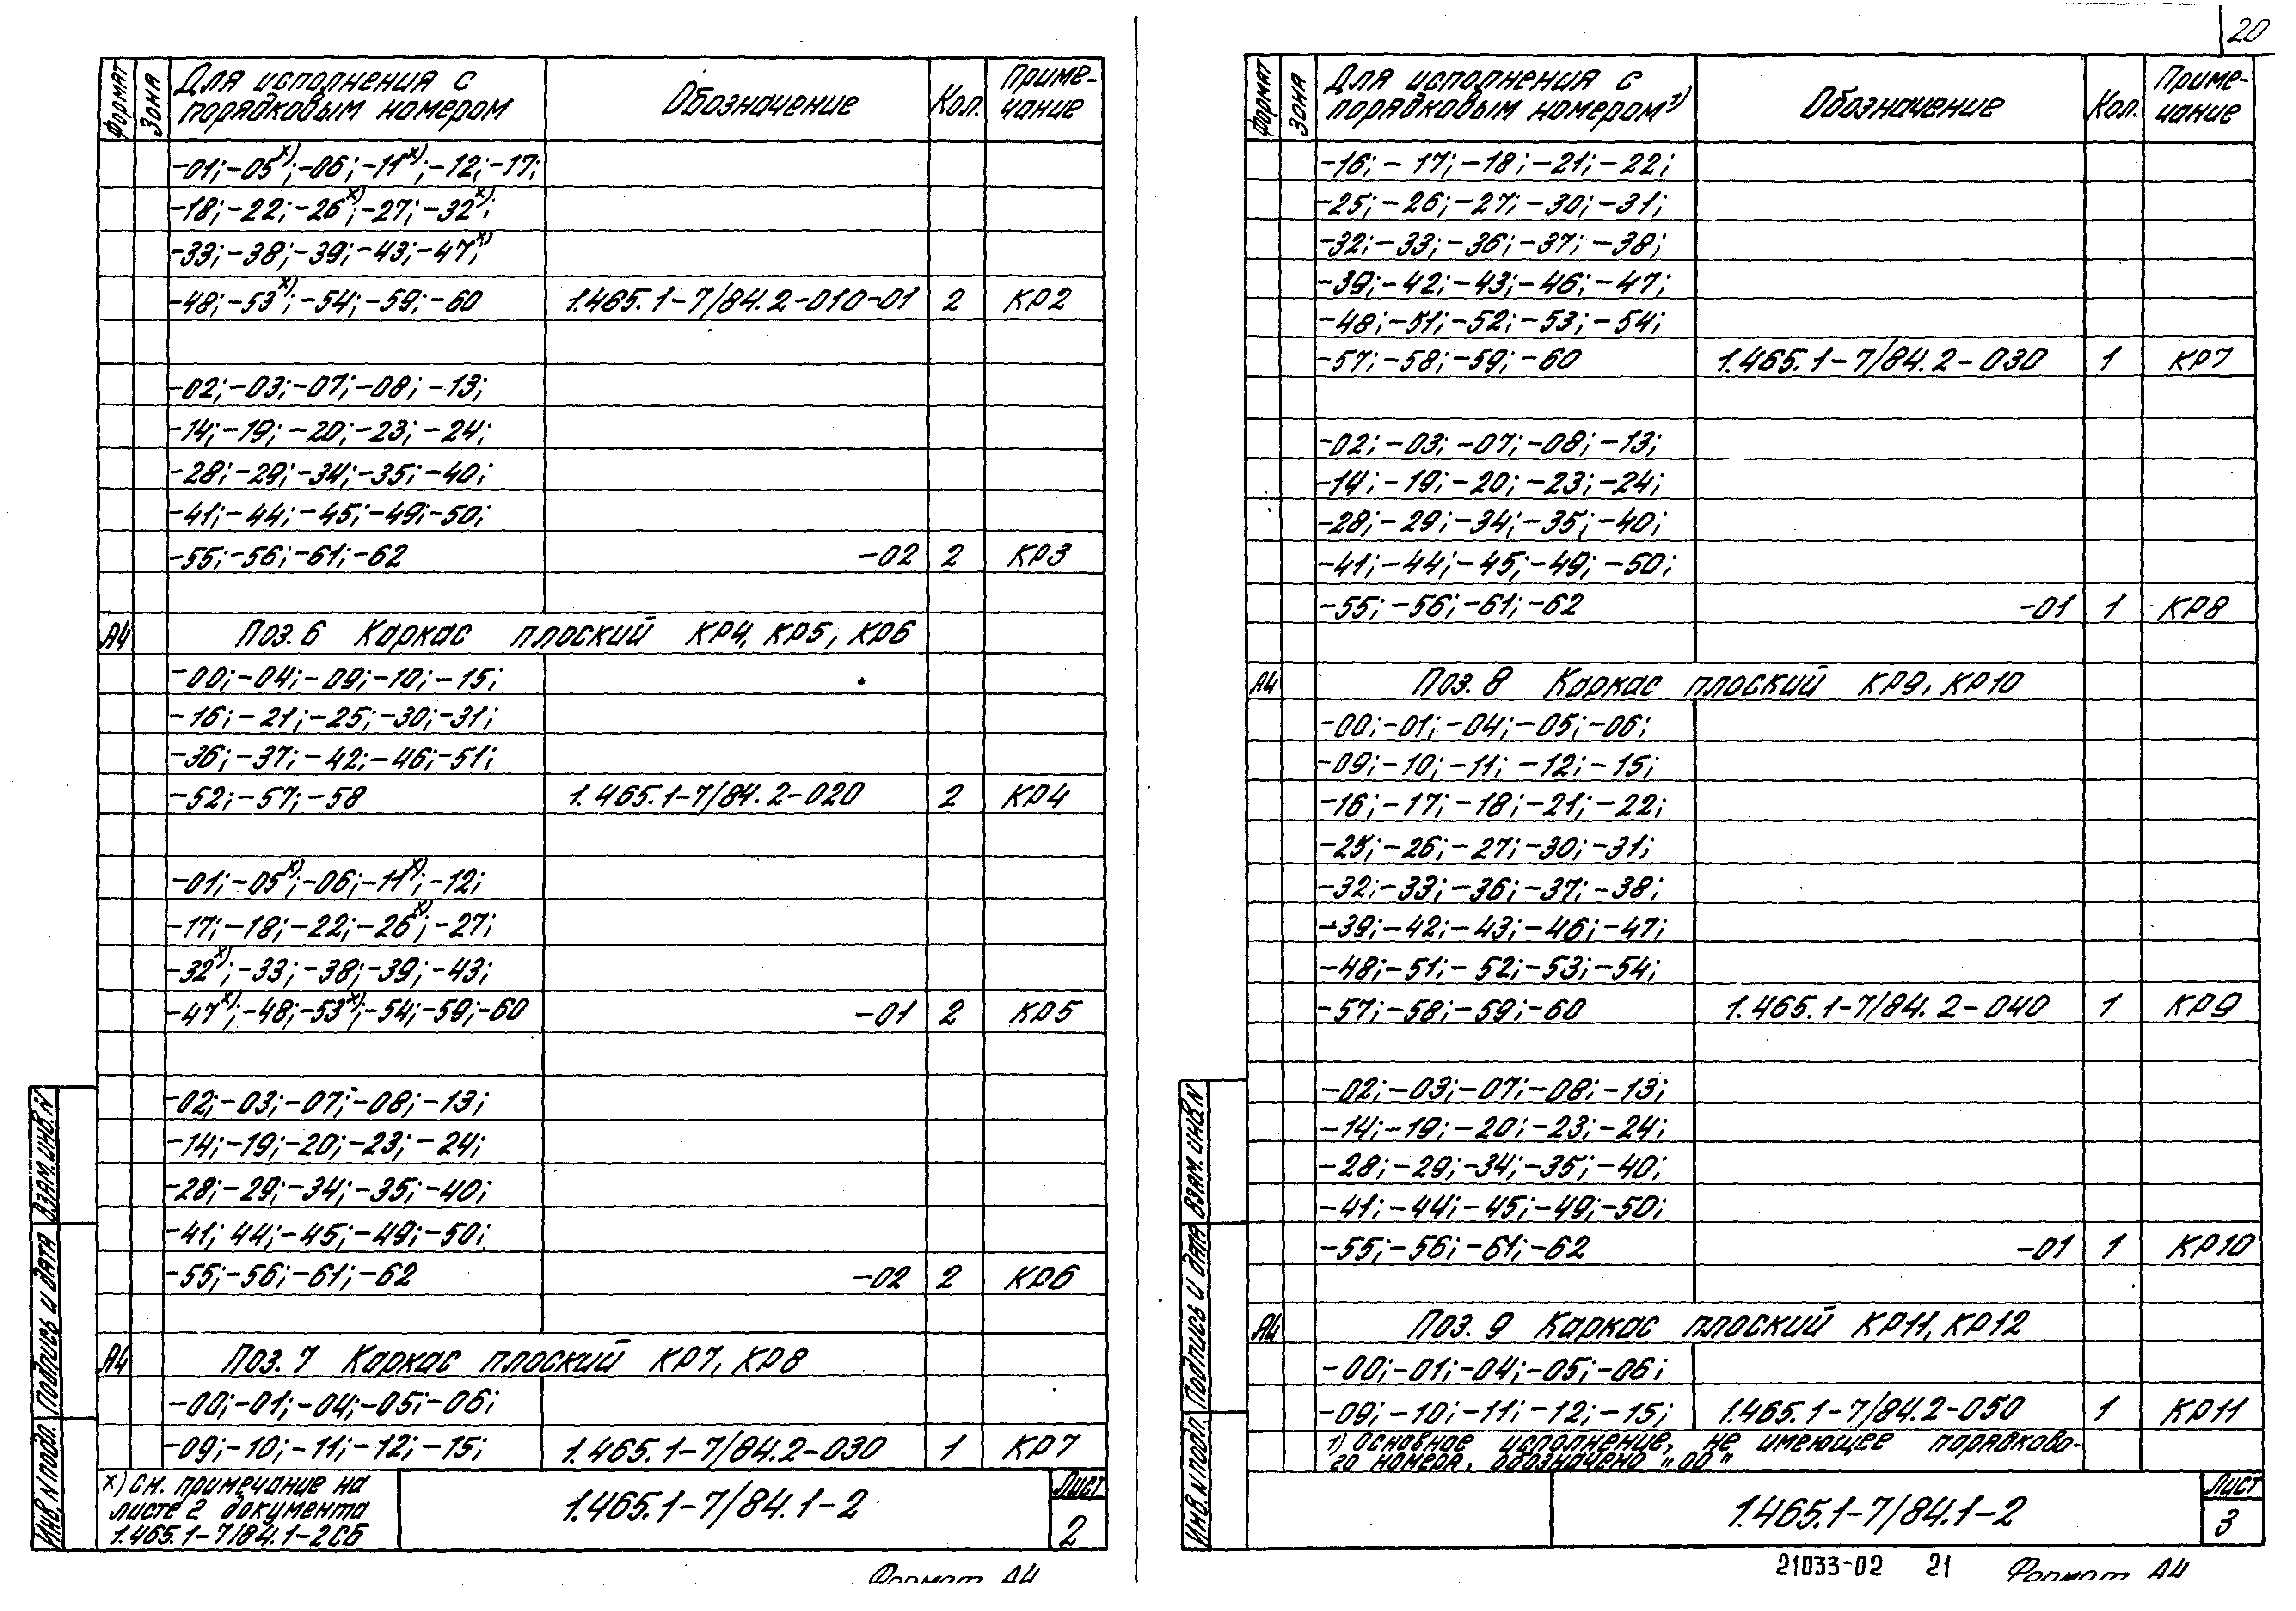 20
Формат Зона Для исполнения с порядковым номером Обозначение Кол. Приме-чание
-01; -05х); -06; -11х); -12; -17;
-18; -22; -26х); -27; -32х);
-33; -38; -39; -43; -47х);
-48; -53х); -54; -59; -60 1.465.1-7/84.2-010-01 2 КР2
-02; -03; -07; -08; -13;
-14; -19; -20; -23; -24;
-28; -29; -34; -35; -40;
-41; -44; -45; -49; -50;
-55; -56; -61; -62 -02 2 КР3
А4 Поз. 6 Каркас плоский КР4, КР5, КР6
-00; -04; -09; -10; -15;
-16; -21; -25; -30; -31;
-36; -37; -42; -46; -51;
-52; -57; -58 1.465.1-7/84.2-020 2 КР4
-01; -05х); -06; -11х); -12;
-17; -18; -22; -26х); -27;
-32х); -33; -38; -39; -43;
-47х); -48; -53х); -54; -59; -60 -01 2 КР5
-02; -03; -07; -08; -13;
-14; -19; -20; -23; -24;
-28; -29; -34; -35; -40;
-41; 44; -45; -49; -50;
-55; -56; -61; -62 -02 2 КР6
А4 Поз. 7 Каркас плоский КР7, КР8
-00; -01; -04; -05; -06;
-09; -10; -11; -12; -15; 1.465.1-7/84.2-030 1 КР7
х) См. примечание на
листе 2 документа
1.465.1-7/84.1-2СБ
1.465.1-7/84.1-2
Лист
2
Инв. N подл. Подпись и дата Взам. инв. N
Формат А4
Формат Зона Для исполнения с порядковым номером 1) Обозначение Кол. Приме-чание
-16; -17; -18; -21; -22;
-25; -26; -27; -30; -31;
-32; -33; -36; -37; -38;
-39; -42; -43; -46; -47;
-48; -51; -52; -53; -54;
-57; -58; -59; -60 1.465.1-7/84.2-030 1 КР7
-02; -03; -07; -08; -13;
-14; -19; -20; -23; -24;
-28; -29; -34; -35; -40;
-41; -44; -45; -49; -50;
-55; -56; -61; -62 -01 1 КР8
А4 Поз. 8 Каркас плоский КР9, КР10
-00; -01; -04; -05; -06;
-09; -10; -11; -12; -15;
-16; -17; -18; -21; -22;
-25; -26; -27; -30; -31;
-32; -33; -36; -37; -38;
-39; -42; -43; -46; -47;
-48; -51; -52; -53; -54;
-57; -58; -59; -60 1.465.1-7/84.2-040 1 КР9
-02; -03; -07; -08; -13;
-14; -19; -20; -23; -24;
-28; -29; -34; -35; -40;
-41; -44; -45; -49; -50;
-55; -56; -61; -62 -01 1 КР10
А4 Поз. 9 Каркас плоский КР11, КР12
-00; -01; -04; -05; -06;
-09; -10; -11; -12; -15; 1.465.1-7/84.2-050 1 КР11
1) Основное исполнение, не имеющее порядково-
го номера, обозначено „00"
1.465.1-7/84.1-2
Лист
3
Инв. N подл. Подпись и дата Взам. инв. N
21033-02 21 Формат А4